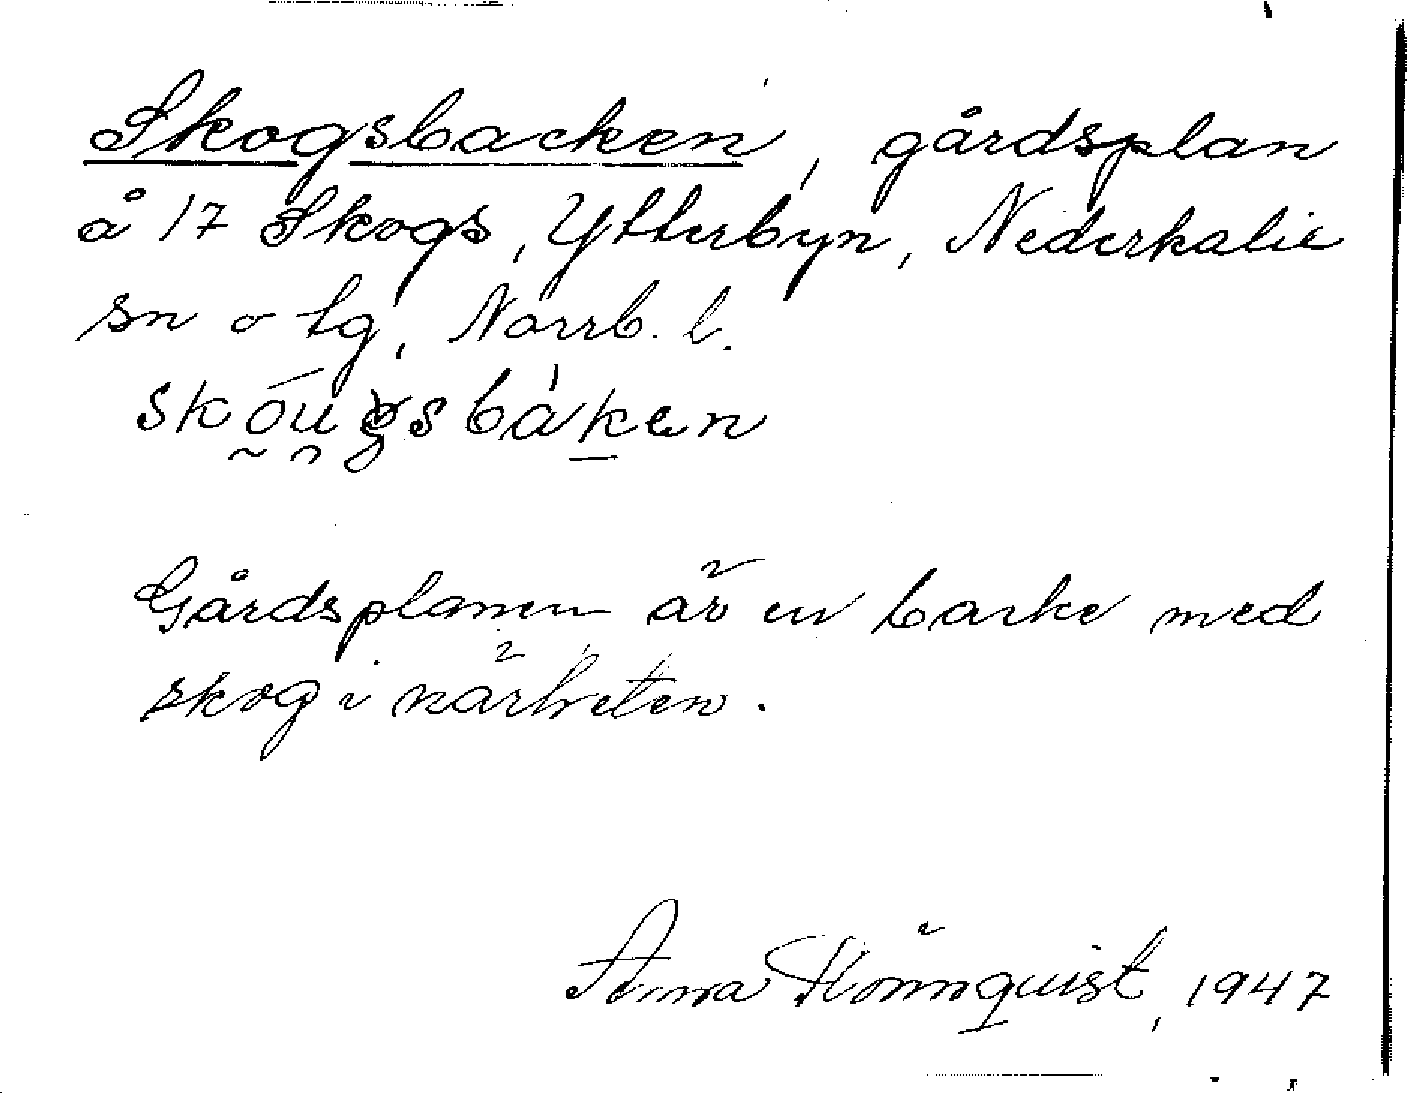 Skogsbacken, gårdsplan
å 17 Skogs, Ytterbyn, Nederkalix
sn o tg, Norrb. l.
skóugsbàken
Gårdsplanen är en backe med
skog i närheten.
Anna 1947